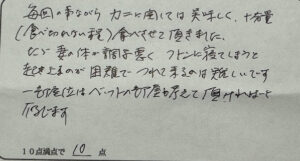 毎回の事ながら カニに関しては美味しく、十分量
(食べきれない程) 食べさせて頂きました
妻の体が調子悪く フトンに寝てしまうと
起き上るのが困難で つれて来るのは難しいです
一部屋位はベットの部屋も考えて頂ければと
10点満点で 10 点